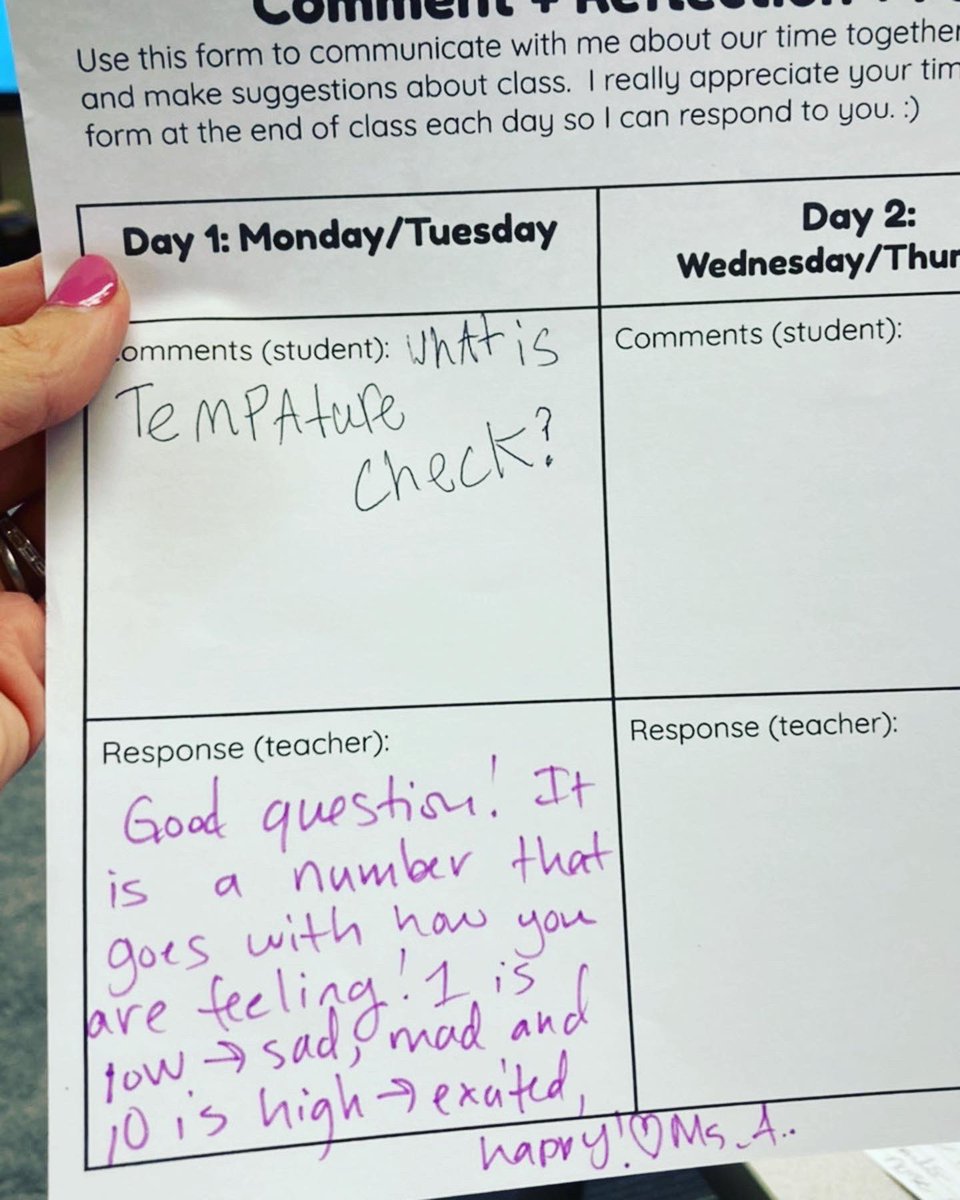 Comment + Reflection
Use this form to communicate with me about our time together
and make suggestions about class. I really appreciate your tim
form at the end of class each day so I can respond to you. :)
Day 1: Monday/Tuesday
Day 2:
Wednesday/Thur
omments (student): what is
Tempature
check?
Comments (student):
Response (teacher):
Good question! It
is a number that
goes with how you
are feeling! 1 is
low → sad, mad and
10 is high → excited,
happy! ♡ Ms. A..
Response (teacher):